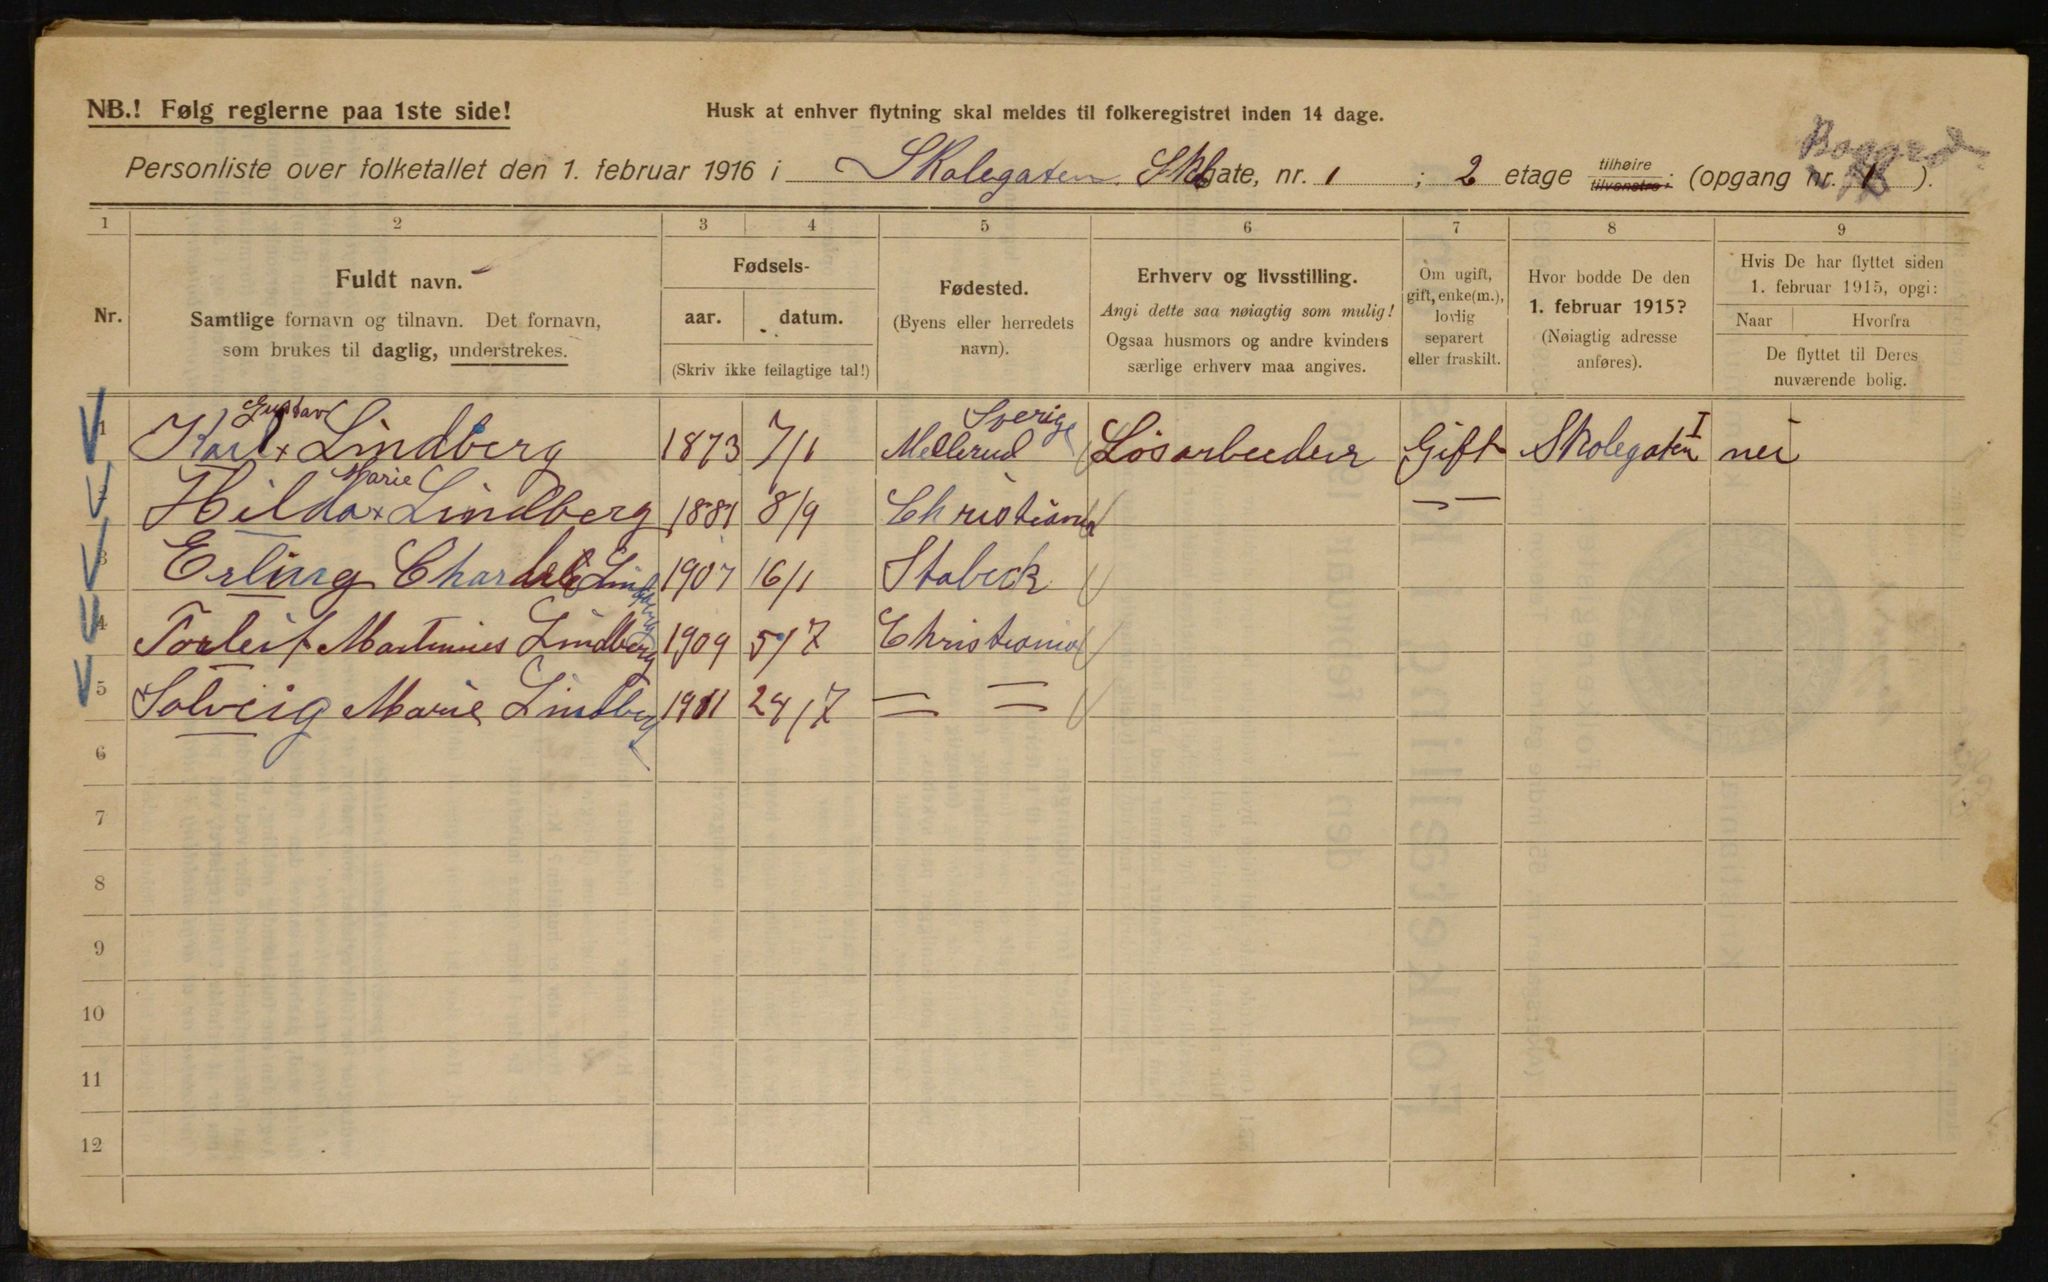 NB.! Følg reglerne paa 1ste side!
Husk at enhver flytning skal meldes til folkeregistret inden 14 dage.
Personliste over folketallet den 1. februar 1916 i Skolegaten gate, nr. 1 ; 2 etage tilhøire tilvenstre; (opgang nr. 1 ).
1 2 3 4 5 6 7 8 9
Nr.
Fuldt navn.
Samtlige fornavn og tilnavn. Det fornavn,
som brukes til daglig, understrekes.
Fødsels-
aar. datum.
(Skriv ikke feilagtige tal!)
Fødested.
(Byens eller herredets
navn).
Erhverv og livsstilling.
Angi dette saa nøiagtig som mulig!
Ogsaa husmors og andre kvinders
særlige erhverv maa angives.
Om ugift,
gift, enke(m.),
lovlig
separert
eller fraskilt.
Hvor bodde De den
1. februar 1915?
(Nøiagtig adresse
anføres).
Hvis De har flyttet siden
1. februar 1915, opgi:
Naar Hvorfra
De flyttet til Deres
nuværende bolig.
Gustav Sverige
1 Karl x Lindberg 1873 7/1 Mellerud Løsarbeider Gift Skolegaten I nei
Marie
2 Hilda x Lindberg 1881 8/9 Christiania — —
3 Erling Charles Lindberg 1907 16/1 Stabeck
4 Torleif Martinius Lindberg 1909 5/7 Christiania
5 Solveig Marie Lindberg 1911 24/7 = =
6
7
8
9
10
11
12